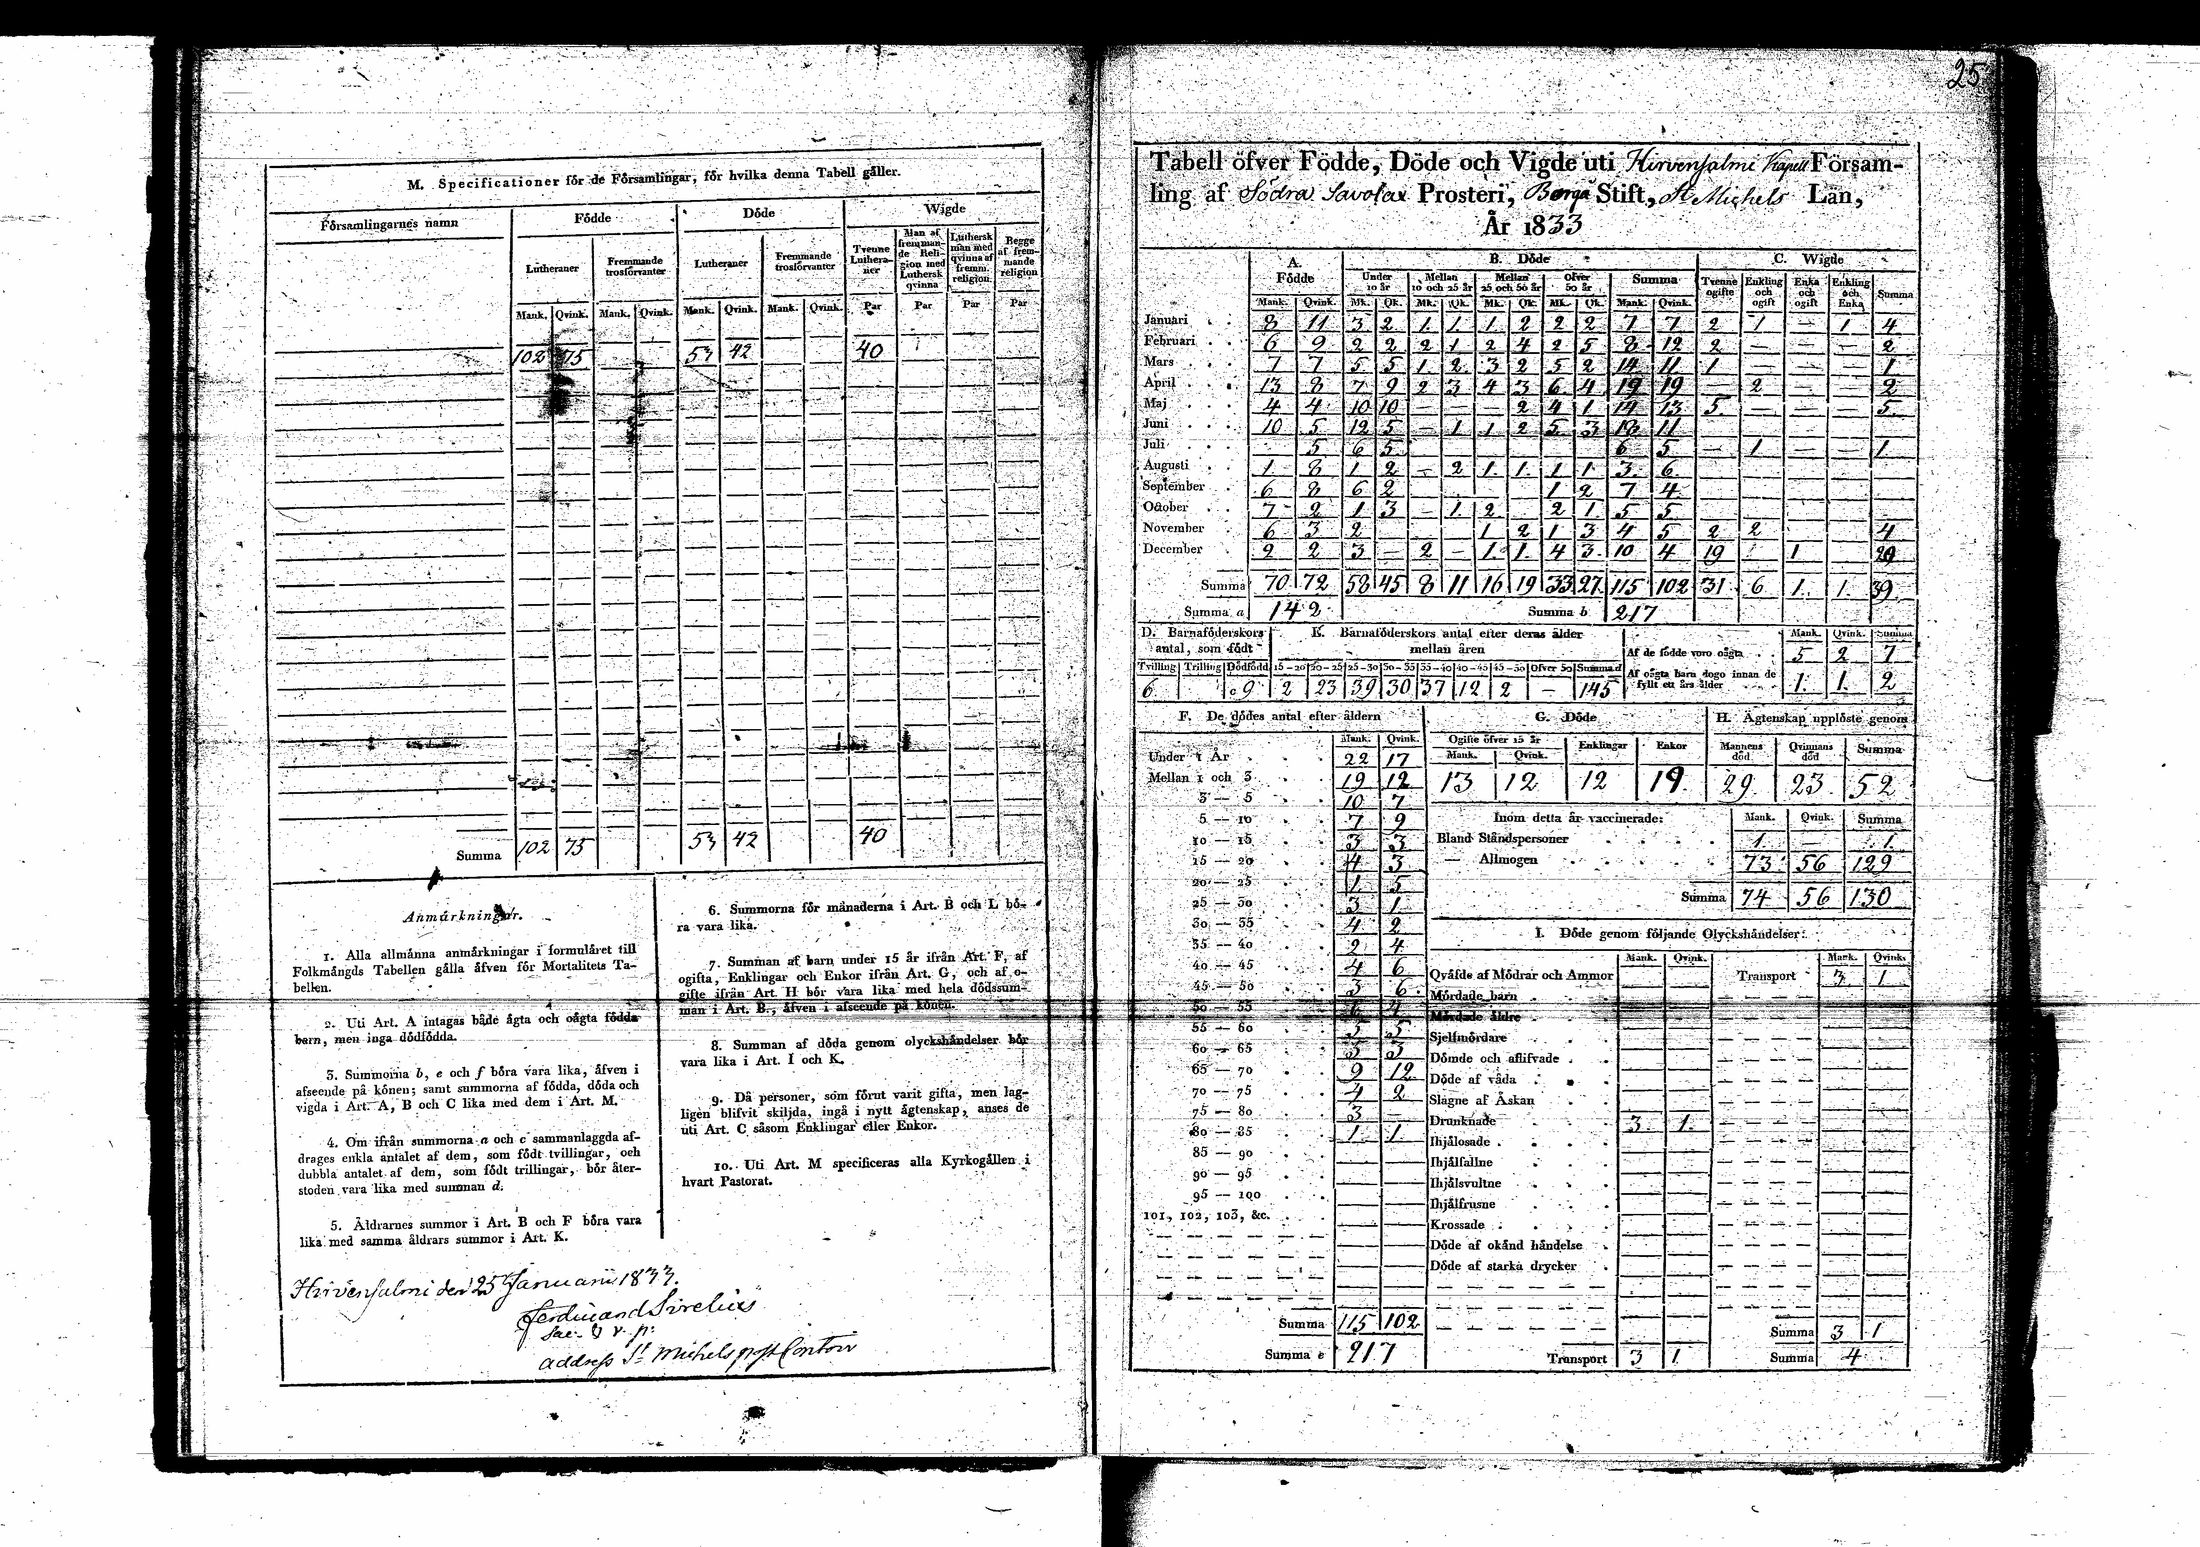 M. Specificationer för de Församlingar, för hvilka denna Tabell gäller.
Församlingarnes namn Födde Döde Wigde
Lutheraner Fremmande trosförvanter Lutheraner Fremmande trosförvanter Tvenne Lutheraner Man af fremmande Religion med Luthersk qvinna Luthersk man med qvinna af fremm. religion. Begge af fremmande religion
Mank. Qvink. Mank. Qvink. Mank. Qvink. Mank. Qvink. Par Par Par Par
102 75 53 42 40
Summa 102 75 53 42 40
Anmärkningar.
1. Alla allmänna anmärkningar i formuläret till
Folkmängds Tabellen gälla äfven för Mortalitets Ta-
bellen.
2. Uti Art. A intagas både ägta och oägta födda
barn, men inga dödfödda.
3. Summorna b, e och f böra vara lika, äfven i
afseende på könen; samt summorna af födda, döda och
vigda i Art. A, B och C lika med dem i Art. M.
4. Om ifrån summorna a och c sammanlaggda af-
drages enkla antalet af dem, som födt tvillingar, och
dubbla antalet af dem, som födt trillingar, bör åter-
stoden vara lika med summan d.
5. Åldrarnes summor i Art. B och F böra vara
lika med samma åldrars summor i Art. K.
6. Summorna för månaderna i Art. B och L bö-
ra vara lika.
7. Summan af barn under 15 år ifrån Art. F, af
ogifta, Enklingar och Enkor ifrån Art. G, och af o-
gifte ifrån Art. H bör vara lika med hela dödssum-
man i Art. B., äfven i afseende på könen.
8. Summan af döda genom olyckshändelser bör
vara lika i Art. I och K.
9. Då personer, som förut varit gifta, men lag-
ligen blifvit skiljda, ingå i nytt ägtenskap, anses de
uti Art. C såsom Enklingar eller Enkor.
10. Uti Art. M specificeras alla Kyrkogällen i
hvart Pastorat.
Hirvensalmi den 25 Januarii 1833.
Ferdinand Sirelius
Sac. v. p.
address St Michels post Contoir
25
Tabell öfver Födde, Döde och Vigde uti Hirvensalmi Kapell Församling
ling af Södra Savolax Prosteri, Borgå Stift, St Michels Län,
År 1833
A. Födde B. Döde C. Wigde
Under 10 år Mellan 10 och 25 år Mellan 25 och 50 år Öfver 50 år Summa Tvenne ogifte Enkling och ogift Enka och ogift Enkling och Enka Summa
Mank. Qvink. Mk. Qk. Mk. Qk. Mk. Qk. Mk. Qk. Mank. Qvink.
Januari 8 11 3 2 1 1 1 2 2 2 7 7 2 1 — 1 4
Februari 6 9 2 2 2 1 2 4 2 5 8 12 2 — — — 2
Mars 7 7 5 5 1 2 3 2 5 2 14 11 1 — — — 1
April 13 8 7 9 2 3 4 3 6 4 19 19 — 2 — — 2
Maj 4 4 10 10 — — — 2 4 1 14 13 5 — — — 5
Juni 10 5 12 5 — 1 1 2 5 3 18 11
Juli 5 6 5 6 5 — 1 — — 1
Augusti 1 8 1 2 — 2 1 1 1 1 3 6
September 6 8 6 2 1 2 7 4
October 7 2 1 3 — 1 2 2 1 5 5
November 6 3 2 1 2 1 3 4 5 2 2 4
December 2 2 3 — 2 — 1 1 4 3 10 4 19 1 20
Summa 70 72 58 45 8 11 16 19 33 27 115 102 31 6 1 1 39
Summa a 142 Summa b 217
D. Barnaföderskors antal, som födt E. Barnaföderskors antal efter deras ålder mellan åren Mank. Qvink. Summa
Tvilling Trilling Dödfödd 15-20 20-25 25-30 30-35 35-40 40-45 45-50 Öfver 50 Summa d
6 9 2 23 39 30 37 12 2 — 145
Af de födde voro oägta 5 2 7
Af oägta barn dogo innan de fyllt ett års ålder 1 1 2
F. De dödes antal efter åldern
Mank. Qvink.
Under 1 År 22 17
Mellan 1 och 3 19 12
3 — 5 10 7
5 — 10 7 9
10 — 15 3 3
15 — 20 4 3
20 — 25 1 5
25 — 30 3 1
30 — 35 4 2
35 — 40 2 4
40 — 45 4 6
45 — 50 3 6
50 — 55 6 4
55 — 60
60 — 65
65 — 70 9 12
70 — 75 4 2
75 — 80 3 —
80 — 85 1 1
85 — 90
90 — 95
95 — 100
101, 102, 103, &c.
Summa 115 102
Summa e 217
G. Döde
Ogifte öfver 15 år Enklingar Enkor
Mank. Qvink.
13 12 12 19
H. Ägtenskap upplöste genom
Mannens död Qvinnans död Summa
29 23 52
Inom detta år vaccinerade: Mank. Qvink. Summa
Bland Ståndspersoner 1 — 1
— Allmogen 73 56 129
Summa 74 56 130
I. Döde genom följande Olyckshändelser:
Mank. Qvink. Mank. Qvink.
Qväfde af Mödrar och Ammor Transport 3 1
Mördade barn
Mördade äldre
Sjelfmördare
Dömde och aflifvade
Döde af våda
Slagne af Åskan
Drunknade 3 1
Ihjälosade
Ihjälfallne
Ihjälsvultne
Ihjälfrusne
Krossade
Döde af okänd händelse
Döde af starka drycker
Summa 3 1
Transport 3 1 Summa 4